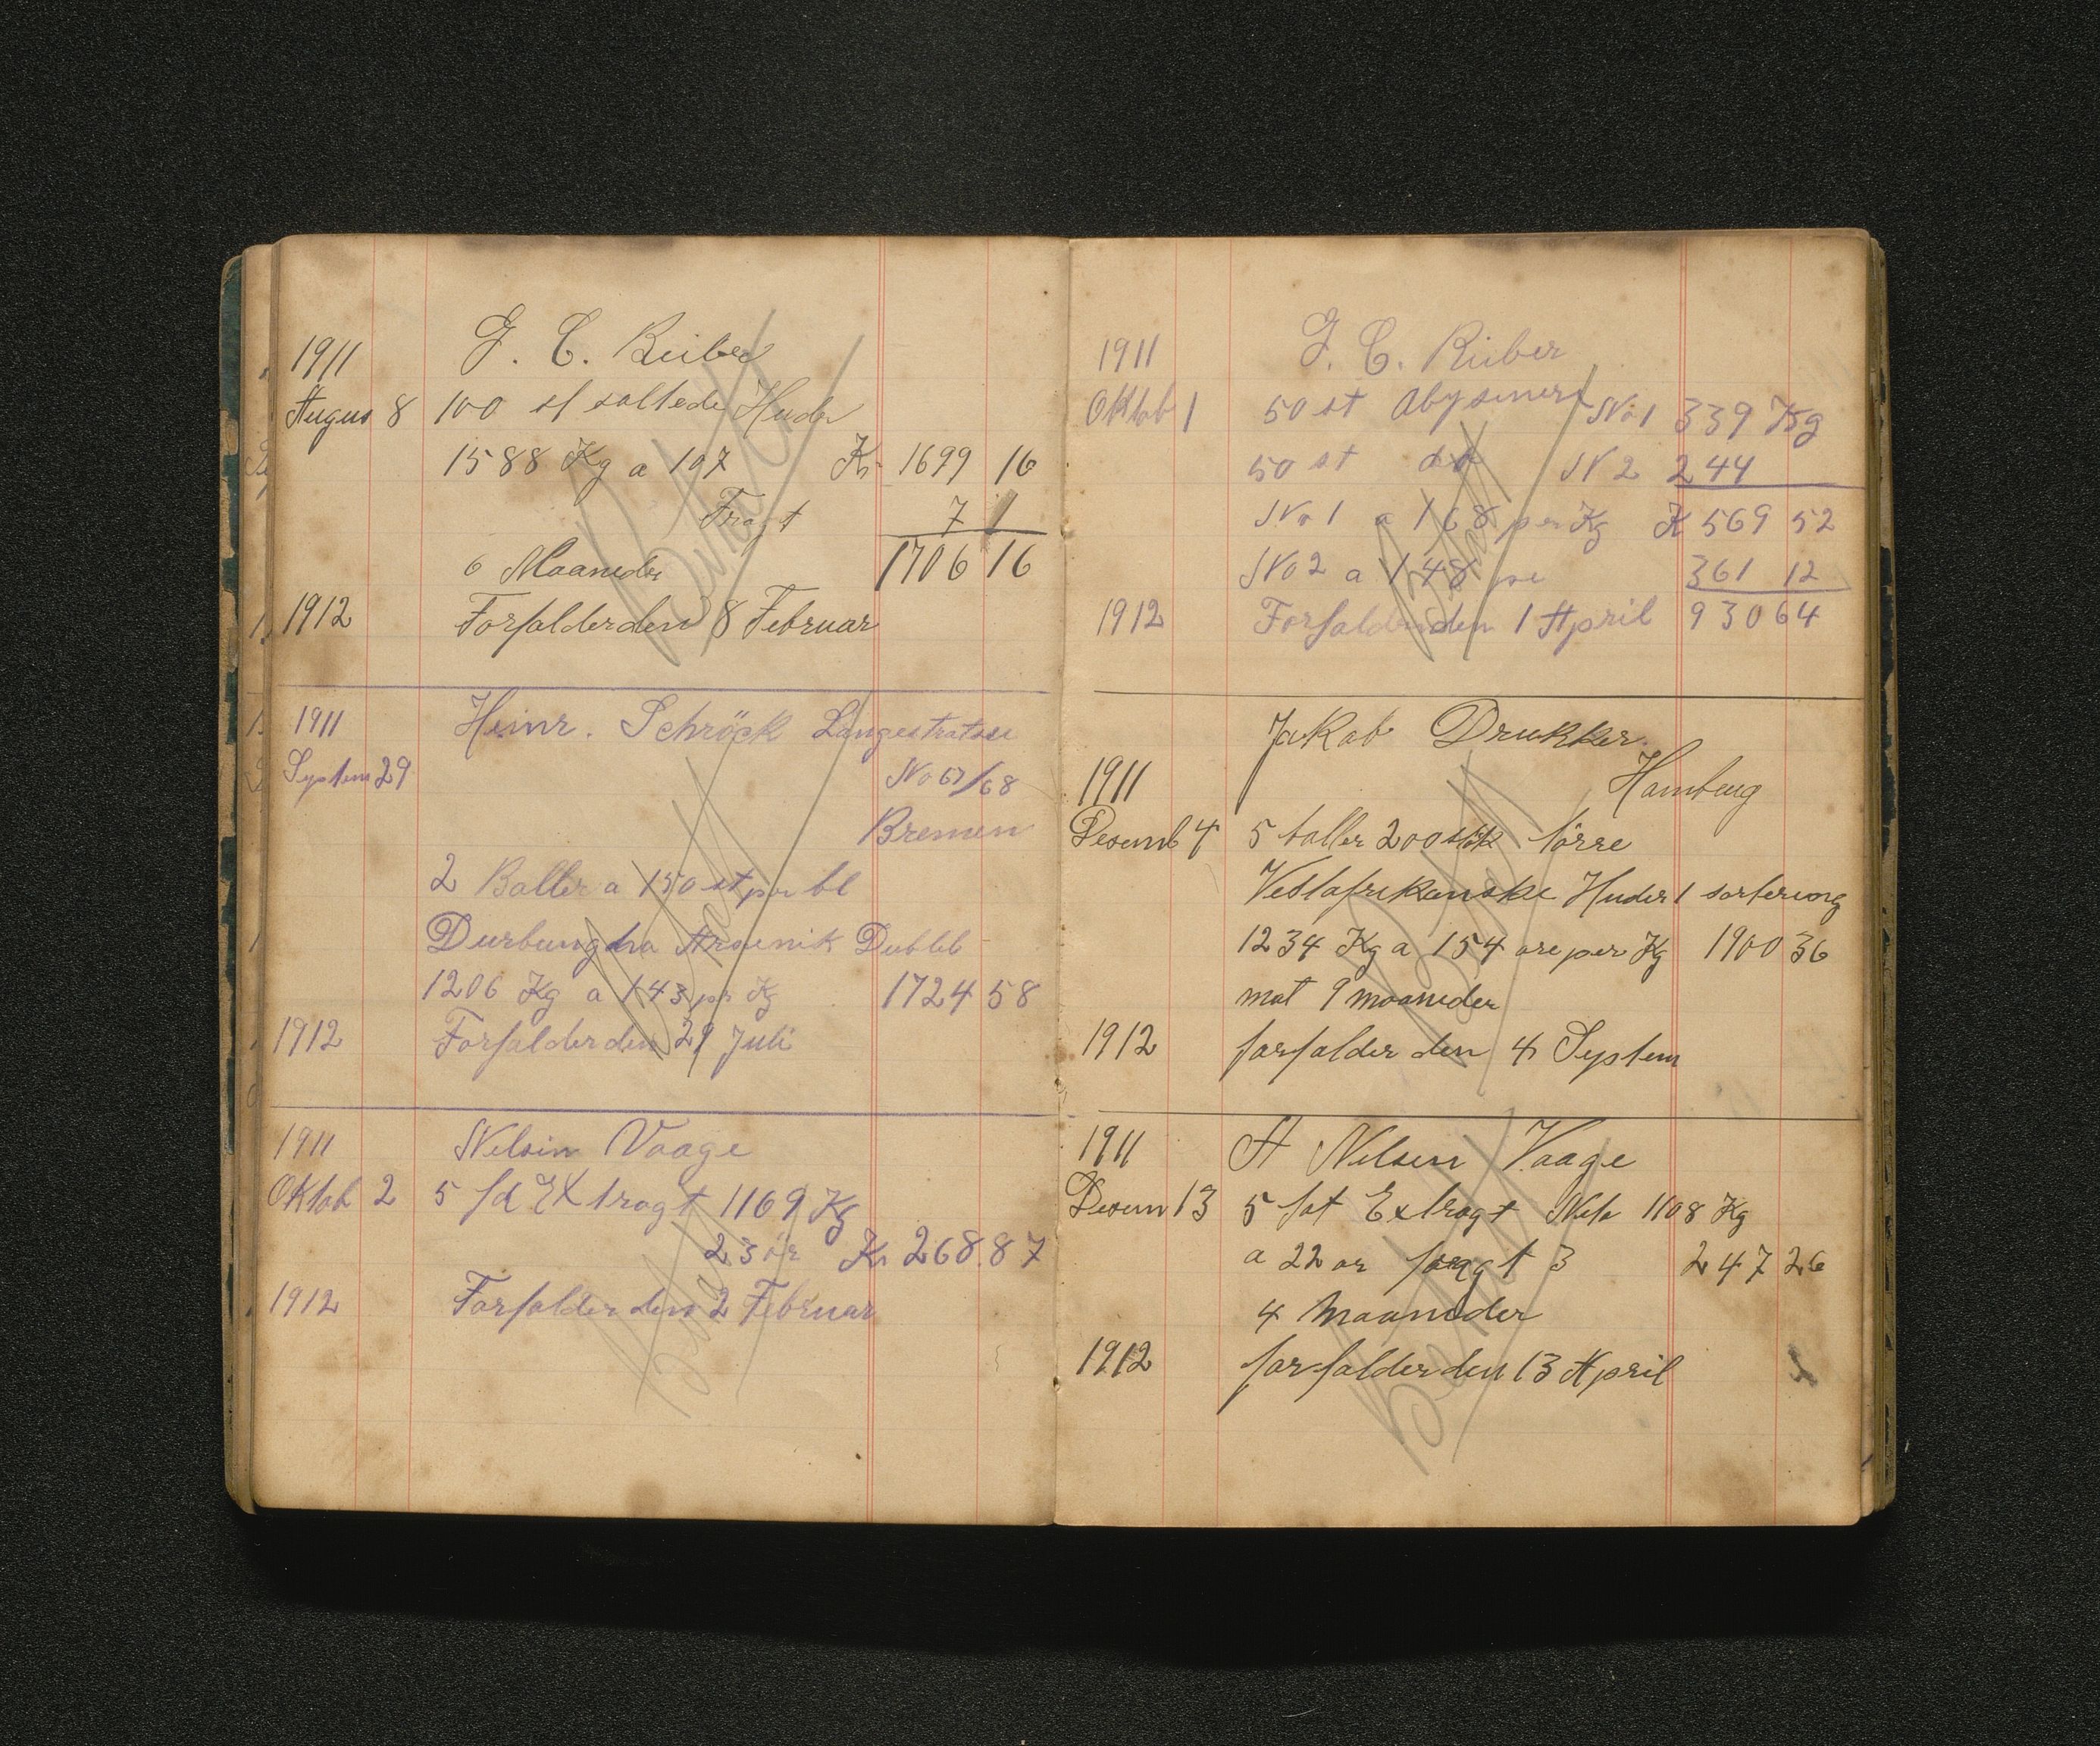 1911 G. C. Rieber
Augus 8 100 st saltede Huder
1588 Kg a 107 Kr 1699 16
Fragt 7
1706 16
6 Maaneder
1912 Forfalder den 8 Februar
Betalt
1911 Heinr. Schröck Langestrasse
System 29 No 67/68
Bremen
2 Baller a 150 st per bl
Durbung Arsenik Dubleb
1206 Kg a 143 pr Kg 1724 58
1912 Forfalder den 29 Juli
Betalt
1911 Nelsin Vaage
Oktob 2 5 fd Extragt 1169 Kg
23 ör Kr 268.87
1912 Forfalder den 2 Februar
Betalt
1911 G. C. Rieber
Oktob 1 50 st Abysiners No 1 339 Kg
50 st do N 2 244
No 1 a 168 per Kg K 569 52
No 2 a 148 pr 361 12
1912 Forfalder den 1 April 930 64
Betalt
Jakob Drukker
1911 Hamburg
Desemb 4 5 baller 200 stök törre
Vestafrikanske Huder 1 sortering
1234 Kg a 154 öre per Kg 1900 36
mot 9 maaneder
1912 forfalder den 4 System
Betalt
1911 A Nelsen Vaage
Desem 13 5 fat Extragt Neto 1108 Kg
a 22 ör fragt 3 247 26
4 Maaneder
1912 forfalder den 13 April
Betalt